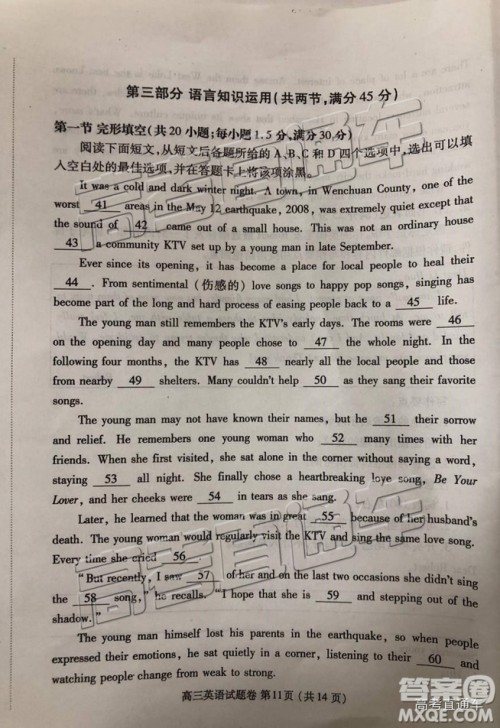 第三部分 语言知识运用(共两节,满分 45 分)
第一节 完形填空(共 20 小题;每小题 1.5 分,满分 30 分)
阅读下面短文,从短文后各题所给的 A、B、C 和 D 四个选项中,选出可以填
入空白处的最佳选项,并在答题卡上将该项涂黑。
It was a cold and dark winter night. A town, in Wenchuan County, one of the
worst 41 areas in the May 12 earthquake, 2008, was extremely quiet except that
the sound of 42 came out of a small house. This was not an ordinary house
43 a community KTV set up by a young man in late September.
Ever since its opening, it has become a place for local people to heal their
44 . From sentimental (伤感的) love songs to happy pop songs, singing has
become part of the long and hard process of easing people back to a 45 life.
The young man still remembers the KTV's early days. The rooms were 46
on the opening day and many people chose to 47 the whole night. In the
following four months, the KTV has 48 nearly all the local people and those
from nearby 49 shelters. Many couldn't help 50 as they sang their favorite
songs.
The young man may not have known their names, but he 51 their sorrow
and relief. He remembers one young woman who 52 many times with her
friends. When she first visited, she sat alone in the corner without saying a word,
staying 53 all night. She finally chose a heartbreaking love song, Be Your
Lover, and her cheeks were 54 in tears as she sang.
Later, he learned that the woman was in great 55 because of her husband's
death. The young woman would regularly visit the KTV and sing the same love song.
Every time she cried 56 .
"But recently, I saw 57 of her and on the last two occasions she didn't sing
the 58 song," he recalls. "I hope that she is 59 and stepping out of the
shadow."
The young man himself lost his parents in the earthquake, so when people
expressed their emotions, he sat quietly in a corner, listening to them 60 and
watching people change from weak to strong.
高三英语试题卷 第11页 (共 14 页)
高考直通车
高考直通车
答案圈
MXQE.COM
高考直通车